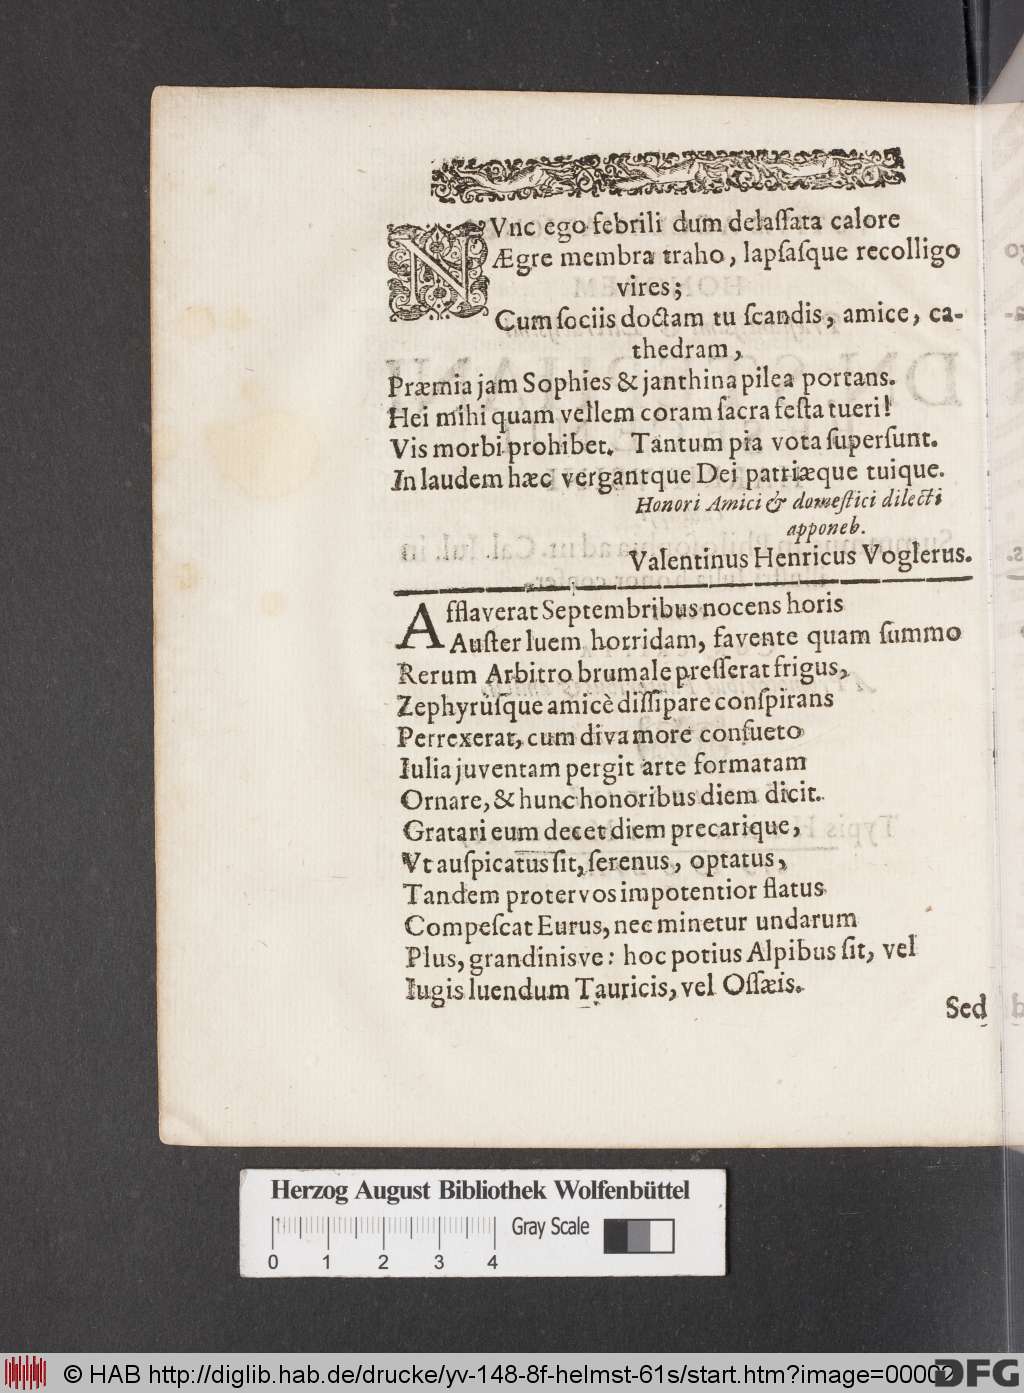 NVnc ego febrili dum delaſſata calore
Ægre membra traho, lapſaſque recolligo
vires;
Cum ſociis doctam tu ſcandis, amice, ca-
thedram,
Præmia jam Sophies & janthina pilea portans.
Hei mihi quam vellem coram ſacra feſta tueri!
Vis morbi prohibet. Tantum pia vota ſuperſunt.
In laudem hæc vergantque Dei patriæque tuique.
Honori Amici & domeſtici dilecti
apponeb.
Valentinus Henricus Voglerus.
Afflaverat Septembribus nocens horis
Auſter luem horridam, favente quam ſummo
Rerum Arbitro brumale preſſerat frigus,
Zephyrúſque amicè diſſipare conſpirans
Perrexerat, cum diva more conſueto
Iulia juventam pergit arte formatam
Ornare, & hunc honoribus diem dicit.
Gratari eum decet diem precarique,
Vt auſpicatus ſit, ſerenus, optatus,
Tandem protervos impotentior flatus
Compeſcat Eurus, nec minetur undarum
Plus, grandinisve: hoc potius Alpibus ſit, vel
Iugis luendum Tauricis, vel Oſſæis.
Sed
Herzog August Bibliothek Wolfenbüttel
Gray Scale
0 1 2 3 4
© HAB http://diglib.hab.de/drucke/yv-148-8f-helmst-61s/start.htm?image=00002
DFG